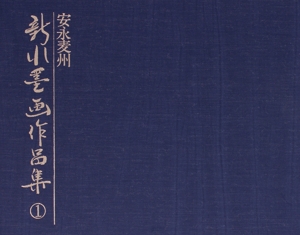 安永麦州
新水墨画作品集①